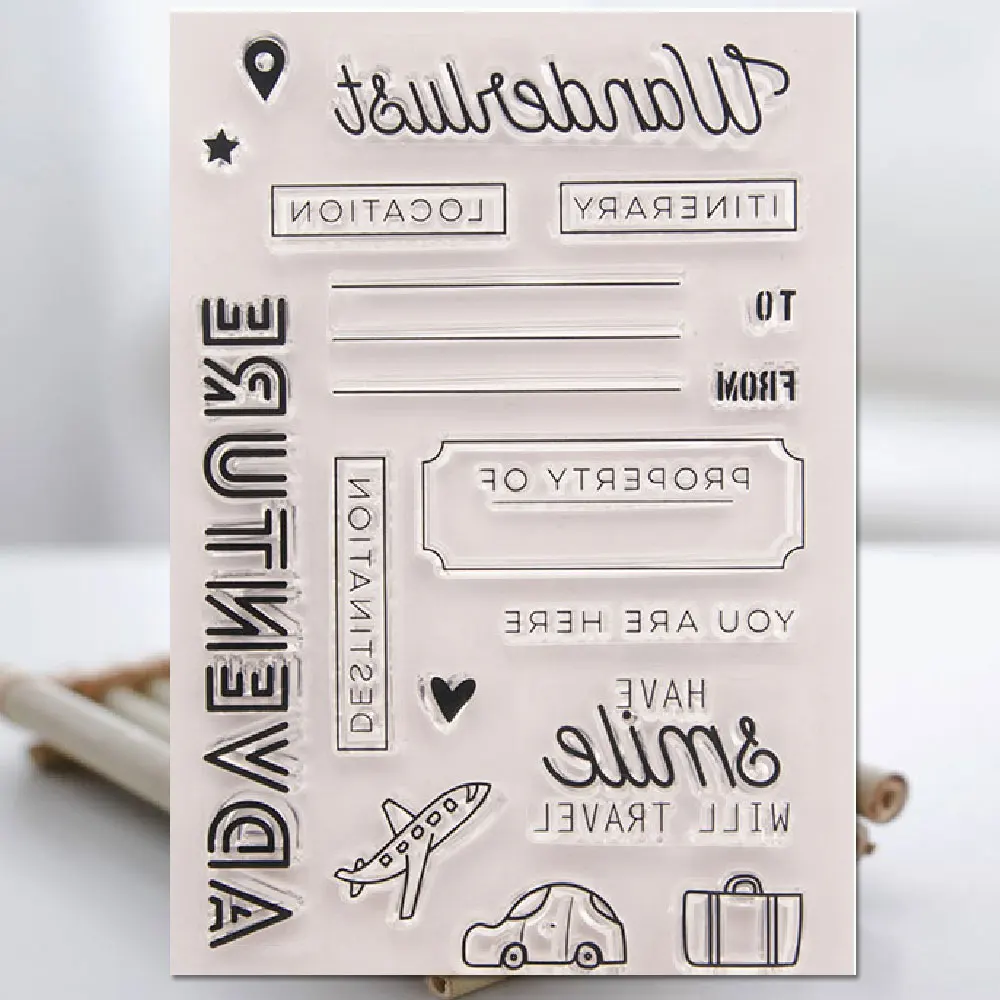 Wanderlust
LOCATION
ITINERARY
TO
FROM
ADVENTURE
PROPERTY OF
DESTINATION
YOU ARE HERE
HAVE
smile
WILL TRAVEL